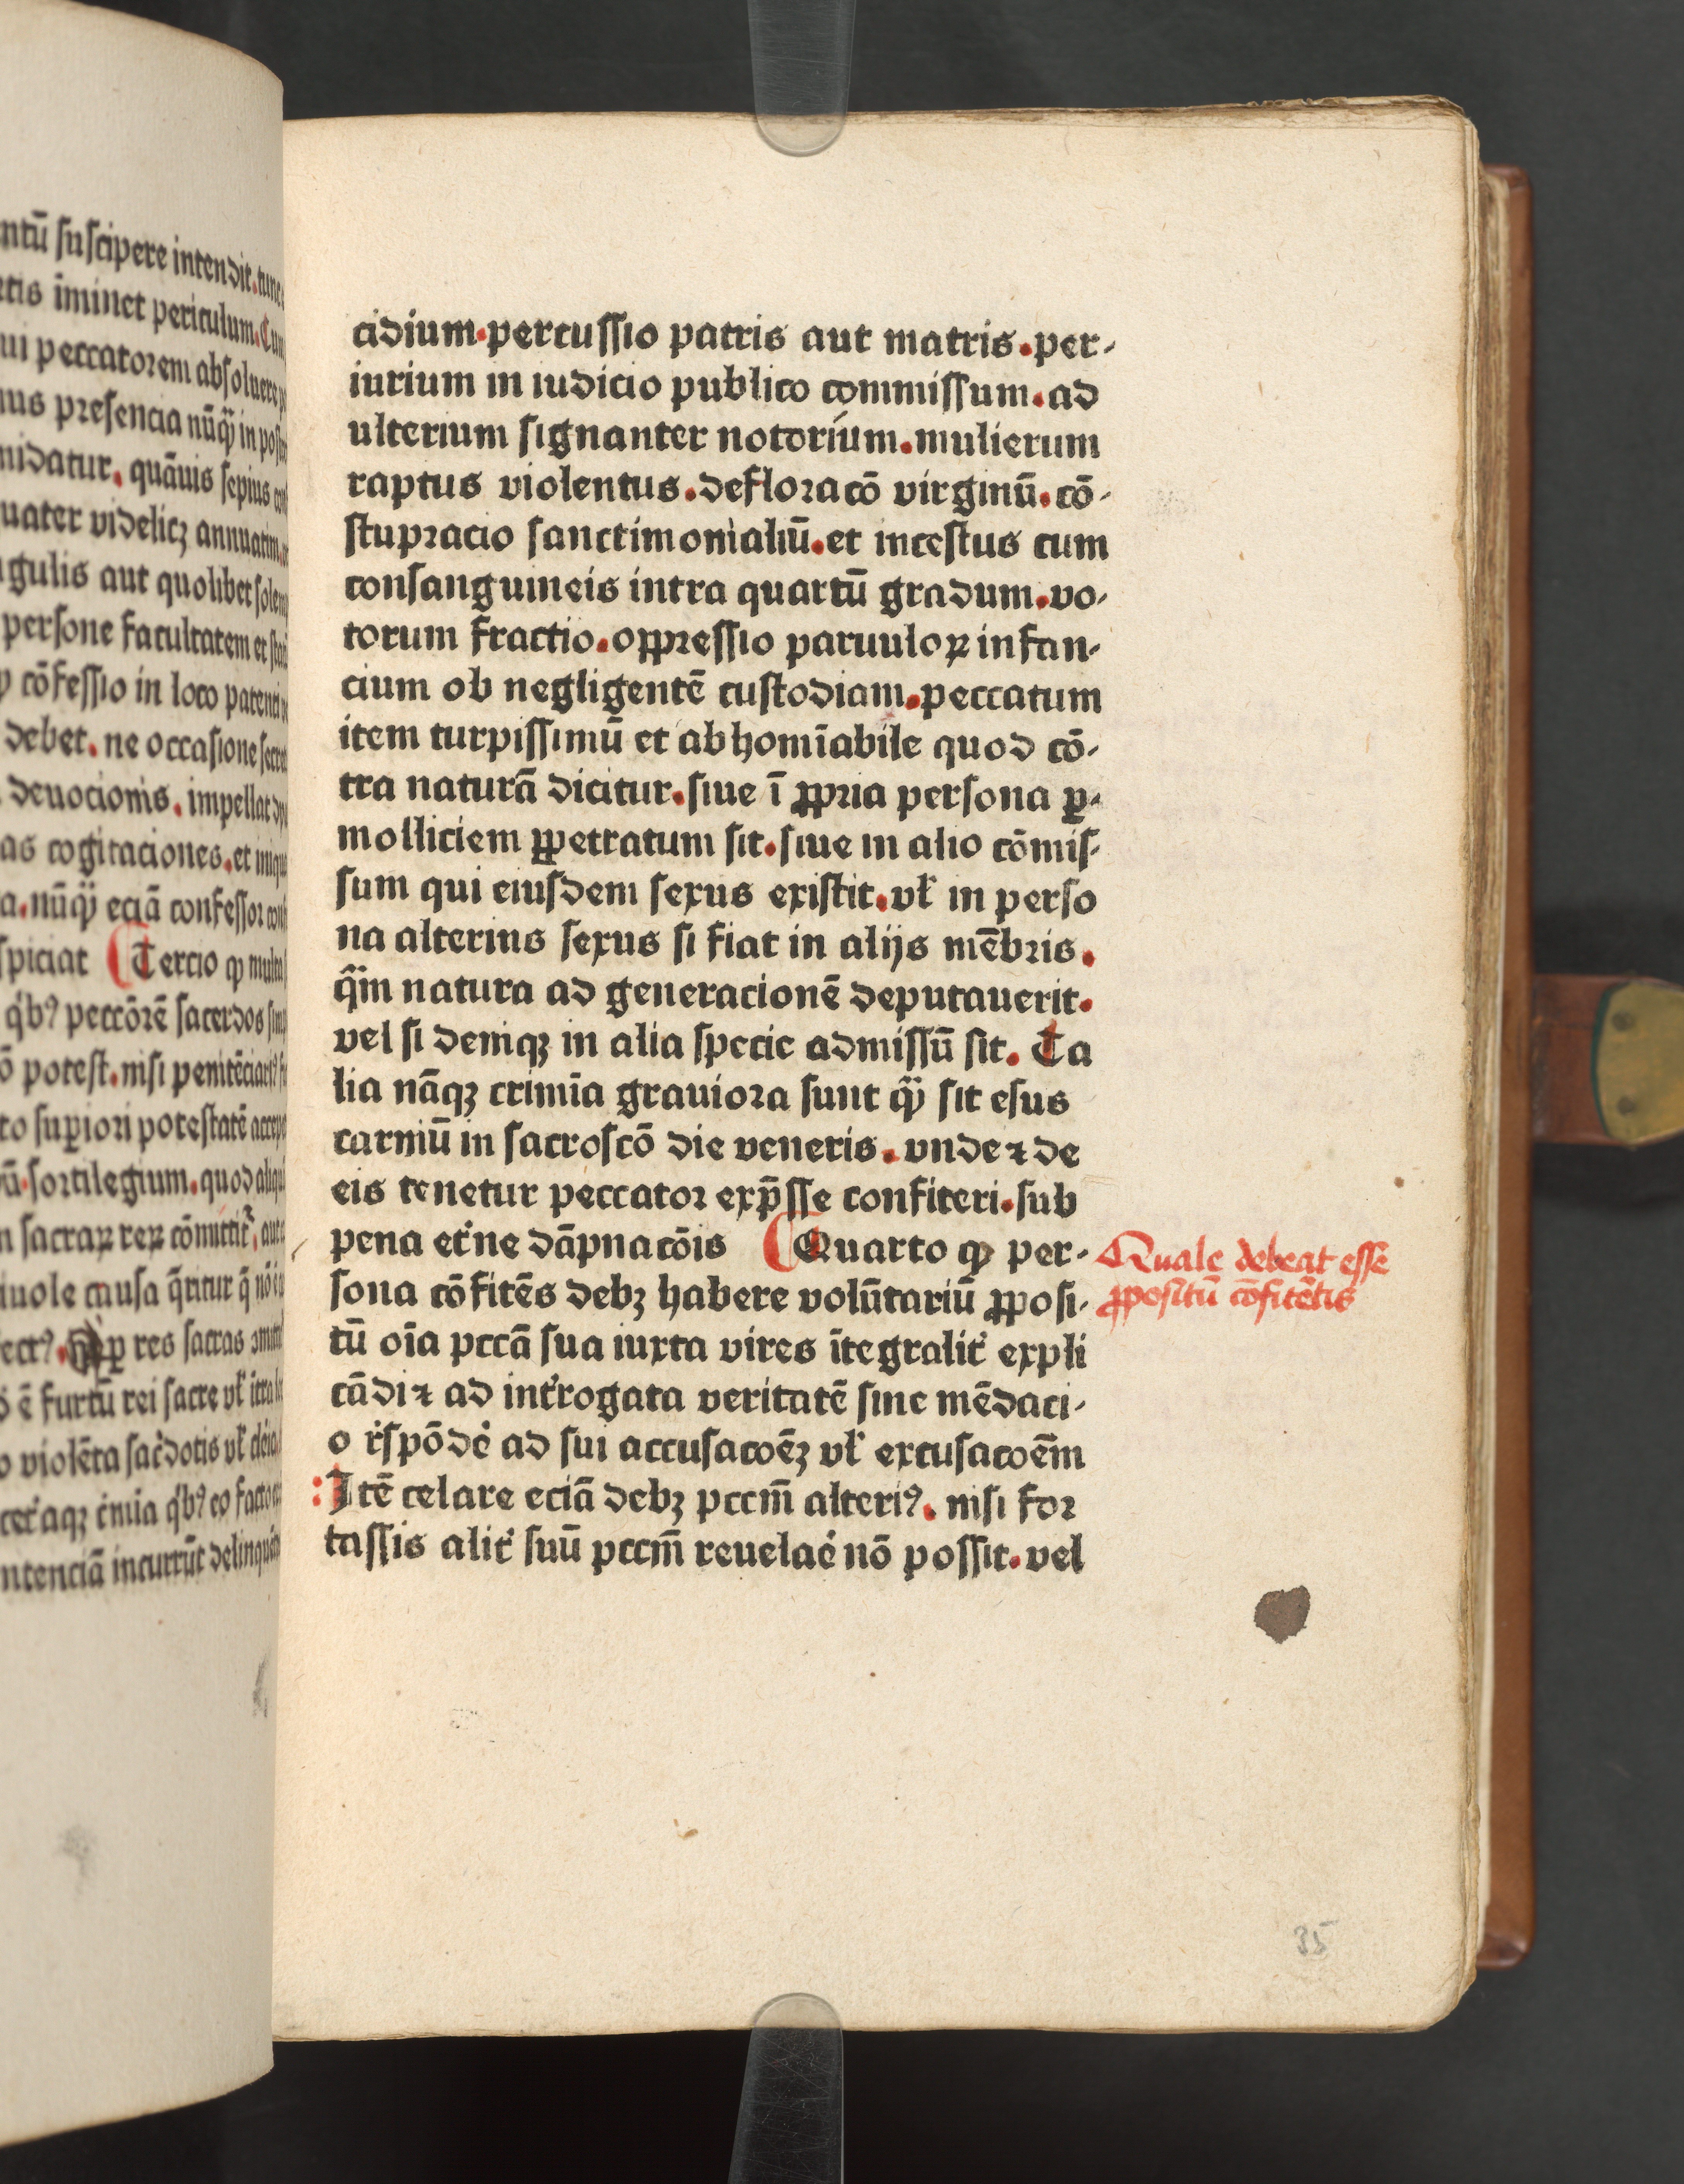 ntū suscipere intendit. tunc
īminet periculum. Cum
ui peccatorem absoluere
presencia nūꝙ̄ in
quāuis sepius
uater videlicꝫ annuatim.
aut quolibet
persone facultatem et
cōfessio in loco
debet. ne occasione
deuocionis. impellat
as cogitaciones. et
nūꝙ̄ eciā confessor
Tercio ꝙ multa
peccōrē sacerdos
potest. nisi
supiori potestatē
sortilegium. quod
sacraꝝ reꝝ
causa
res sacras
ē furtū rei sacre vł
violēta
delinquē
cidium. percussio patris aut matris. per-
iurium in iudicio publico commissum. ad
ulterium signanter notorium. mulierum
raptus violentus. defloracō virginū. cō-
stupracio sanctimonialiū. et incestus cum
consanguineis intra quartū gradum. vo-
torum fractio. oppressio paruuloꝝ infan-
cium ob negligentē custodiam. peccatum
item turpissimū et abhomīabile quod cō-
tra naturā dicitur. siue ī ꝓpria persona ꝑ-
molliciem ꝑpetratum sit. siue in alio cōmis-
sum qui eiusdem sexus existit. vł in perso
na alterius sexus si fiat in alijs mēbris.
q̄m natura ad generacionē deputauerit.
vel si deniqꝫ in alia specie admissū sit. Ta
lia nāqꝫ crimīa grauiora sunt ꝙ̄ sit esus
carniū in sacroscō die veneris. vnde ⁊ de
eis tenetur peccator exp̄sse confiteri. sub
pena et̓ne dāpnacōis Quarto ꝙ per-
sona cōfitēs debꝫ habere volūtariū ꝓposi-
tū oīa pccā sua iuxta vires ītegralit̓ expli
cādi ⁊ ad int̓rogata veritatē sine mēdaci-
o r̓spōde̓ ad sui accusacoēꝫ vł excusacoēm
Itē celare eciā debꝫ pccm̄ alteriꝰ. nisi for
tassis alit̓ suū pccm̄ reuelae̓ nō possit. vel
Quale debeat esse
ꝓpositū cōfitētis
35